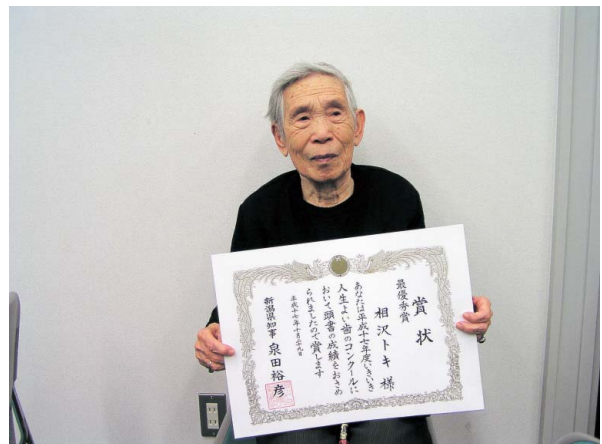 賞状
最優秀賞
相沢トキ 様
あなたは平成十七年度いきいき
人生よい歯のコンクールに
おいて頭書の成績をおさめ
られましたので賞します
平成十七年十月二十九日
新潟県知事 泉田裕彦